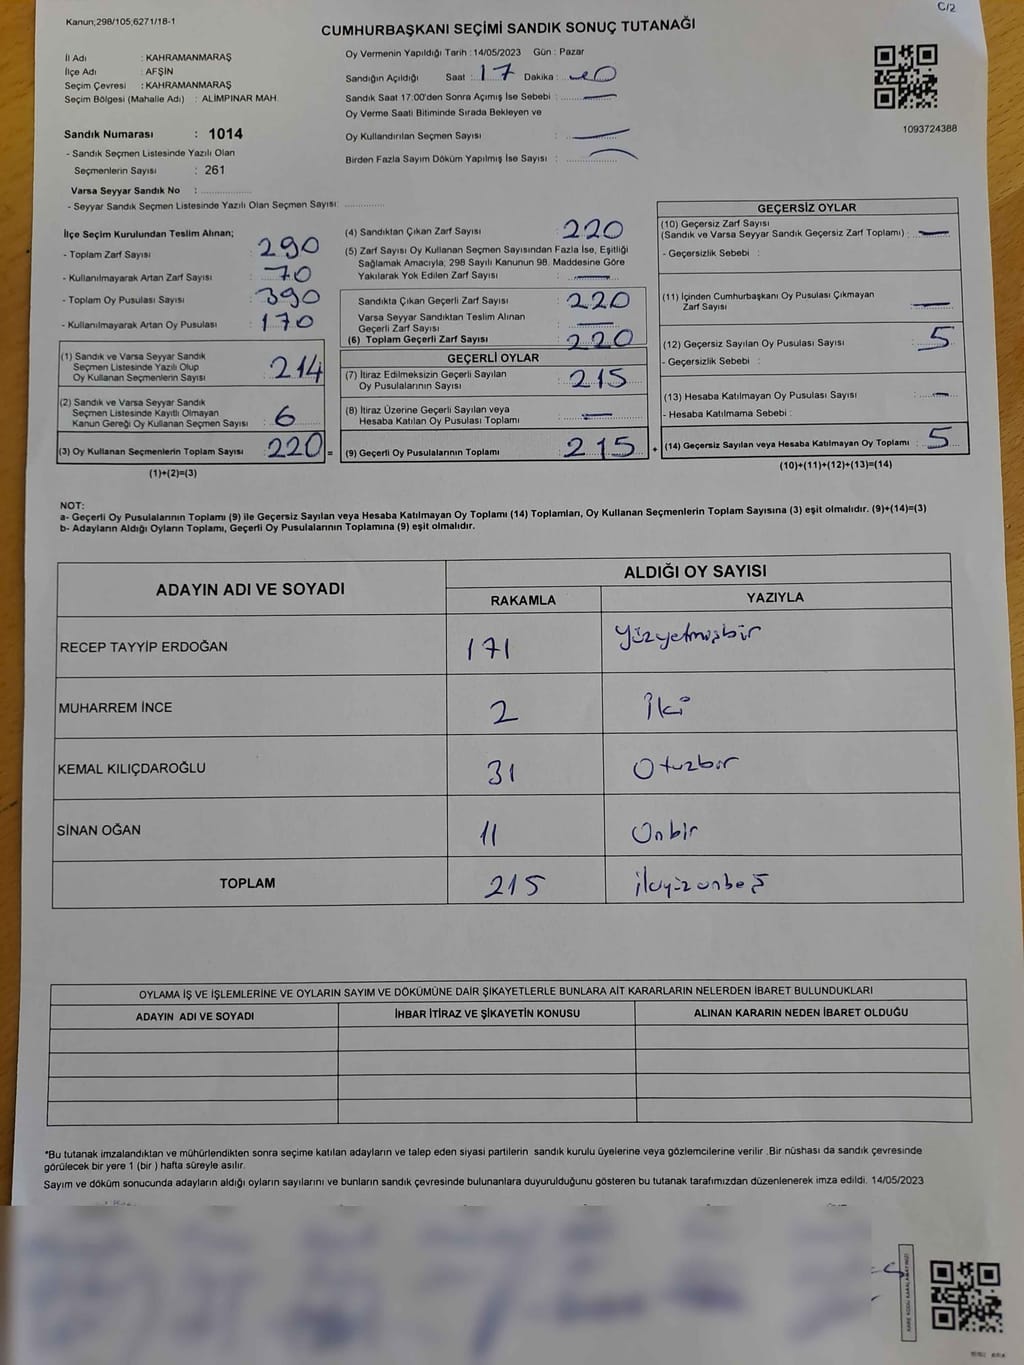 C/2
Kanun;298/105;6271/18-1
CUMHURBAŞKANI SEÇİMİ SANDIK SONUÇ TUTANAĞI
İl Adı : KAHRAMANMARAŞ
İlçe Adı : AFŞİN
Seçim Çevresi : KAHRAMANMARAŞ
Seçim Bölgesi (Mahalle Adı) : ALİMPINAR MAH.
Sandık Numarası : 1014
- Sandık Seçmen Listesinde Yazılı Olan
Seçmenlerin Sayısı : 261
Varsa Seyyar Sandık No :
- Seyyar Sandık Seçmen Listesinde Yazılı Olan Seçmen Sayısı:
Oy Vermenin Yapıldığı Tarih : 14/05/2023 Gün : Pazar
Sandığın Açıldığı Saat : 17 Dakika :
Sandık Saat 17:00'den Sonra Açımış İse Sebebi : —
Oy Verme Saati Bitiminde Sırada Bekleyen ve
Oy Kullandırılan Seçmen Sayısı : —
Birden Fazla Sayım Döküm Yapılmış İse Sayısı : —
1093724388
İlçe Seçim Kurulundan Teslim Alınan;
- Toplam Zarf Sayısı : 290
- Kullanılmayarak Artan Zarf Sayısı : 70
- Toplam Oy Pusulası Sayısı : 390
- Kullanılmayarak Artan Oy Pusulası : 170
(1) Sandık ve Varsa Seyyar Sandık
Seçmen Listesinde Yazılı Olup
Oy Kullanan Seçmenlerin Sayısı : 214
(2) Sandık ve Varsa Seyyar Sandık
Seçmen Listesinde Kayıtlı Olmayan
Kanun Gereği Oy Kullanan Seçmen Sayısı : 6
(3) Oy Kullanan Seçmenlerin Toplam Sayısı : 220 =
(1)+(2)=(3)
(4) Sandıktan Çıkan Zarf Sayısı : 220
(5) Zarf Sayısı Oy Kullanan Seçmen Sayısından Fazla İse, Eşitliği
Sağlamak Amacıyla; 298 Sayılı Kanunun 98. Maddesine Göre
Yakılarak Yok Edilen Zarf Sayısı : —
Sandıkta Çıkan Geçerli Zarf Sayısı : 220
Varsa Seyyar Sandıktan Teslim Alınan
Geçerli Zarf Sayısı : —
(6) Toplam Geçerli Zarf Sayısı : 220
GEÇERLİ OYLAR
(7) İtiraz Edilmeksizin Geçerli Sayılan
Oy Pusulalarının Sayısı : 215
(8) İtiraz Üzerine Geçerli Sayılan veya
Hesaba Katılan Oy Pusulası Toplamı : —
(9) Geçerli Oy Pusulalarının Toplamı : 215 +
GEÇERSİZ OYLAR
(10) Geçersiz Zarf Sayısı
(Sandık ve Varsa Seyyar Sandık Geçersiz Zarf Toplamı) : —
- Geçersizlik Sebebi :
(11) İçinden Cumhurbaşkanı Oy Pusulası Çıkmayan
Zarf Sayısı : —
(12) Geçersiz Sayılan Oy Pusulası Sayısı : 5
- Geçersizlik Sebebi :
(13) Hesaba Katılmayan Oy Pusulası Sayısı : —
- Hesaba Katılmama Sebebi :
(14) Geçersiz Sayılan veya Hesaba Katılmayan Oy Toplamı : 5
(10)+(11)+(12)+(13)=(14)
NOT:
a- Geçerli Oy Pusulalarının Toplamı (9) ile Geçersiz Sayılan veya Hesaba Katılmayan Oy Toplamı (14) Toplamları, Oy Kullanan Seçmenlerin Toplam Sayısına (3) eşit olmalıdır. (9)+(14)=(3)
b- Adayların Aldığı Oyların Toplamı, Geçerli Oy Pusulalarının Toplamına (9) eşit olmalıdır.
ADAYIN ADI VE SOYADI ALDIĞI OY SAYISI
RAKAMLA YAZIYLA
RECEP TAYYİP ERDOĞAN 171 Yüzyetmişbir
MUHARREM İNCE 2 İki
KEMAL KILIÇDAROĞLU 31 Otuzbir
SİNAN OĞAN 11 Onbir
TOPLAM 215 ikiyüzonbeş
OYLAMA İŞ VE İŞLEMLERİNE VE OYLARIN SAYIM VE DÖKÜMÜNE DAİR ŞİKAYETLERLE BUNLARA AİT KARARLARIN NELERDEN İBARET BULUNDUKLARI
ADAYIN ADI VE SOYADI İHBAR İTİRAZ VE ŞİKAYETİN KONUSU ALINAN KARARIN NEDEN İBARET OLDUĞU
*Bu tutanak imzalandıktan ve mühürlendikten sonra seçime katılan adayların ve talep eden siyasi partilerin sandık kurulu üyelerine veya gözlemcilerine verilir .Bir nüshası da sandık çevresinde
görülecek bir yere 1 (bir ) hafta süreyle asılır.
Sayım ve döküm sonucunda adayların aldığı oyların sayılarını ve bunların sandık çevresinde bulunanlara duyurulduğunu gösteren bu tutanak tarafımızdan düzenlenerek imza edildi. 14/05/2023
KARE KODU KARALAMAYINIZ!